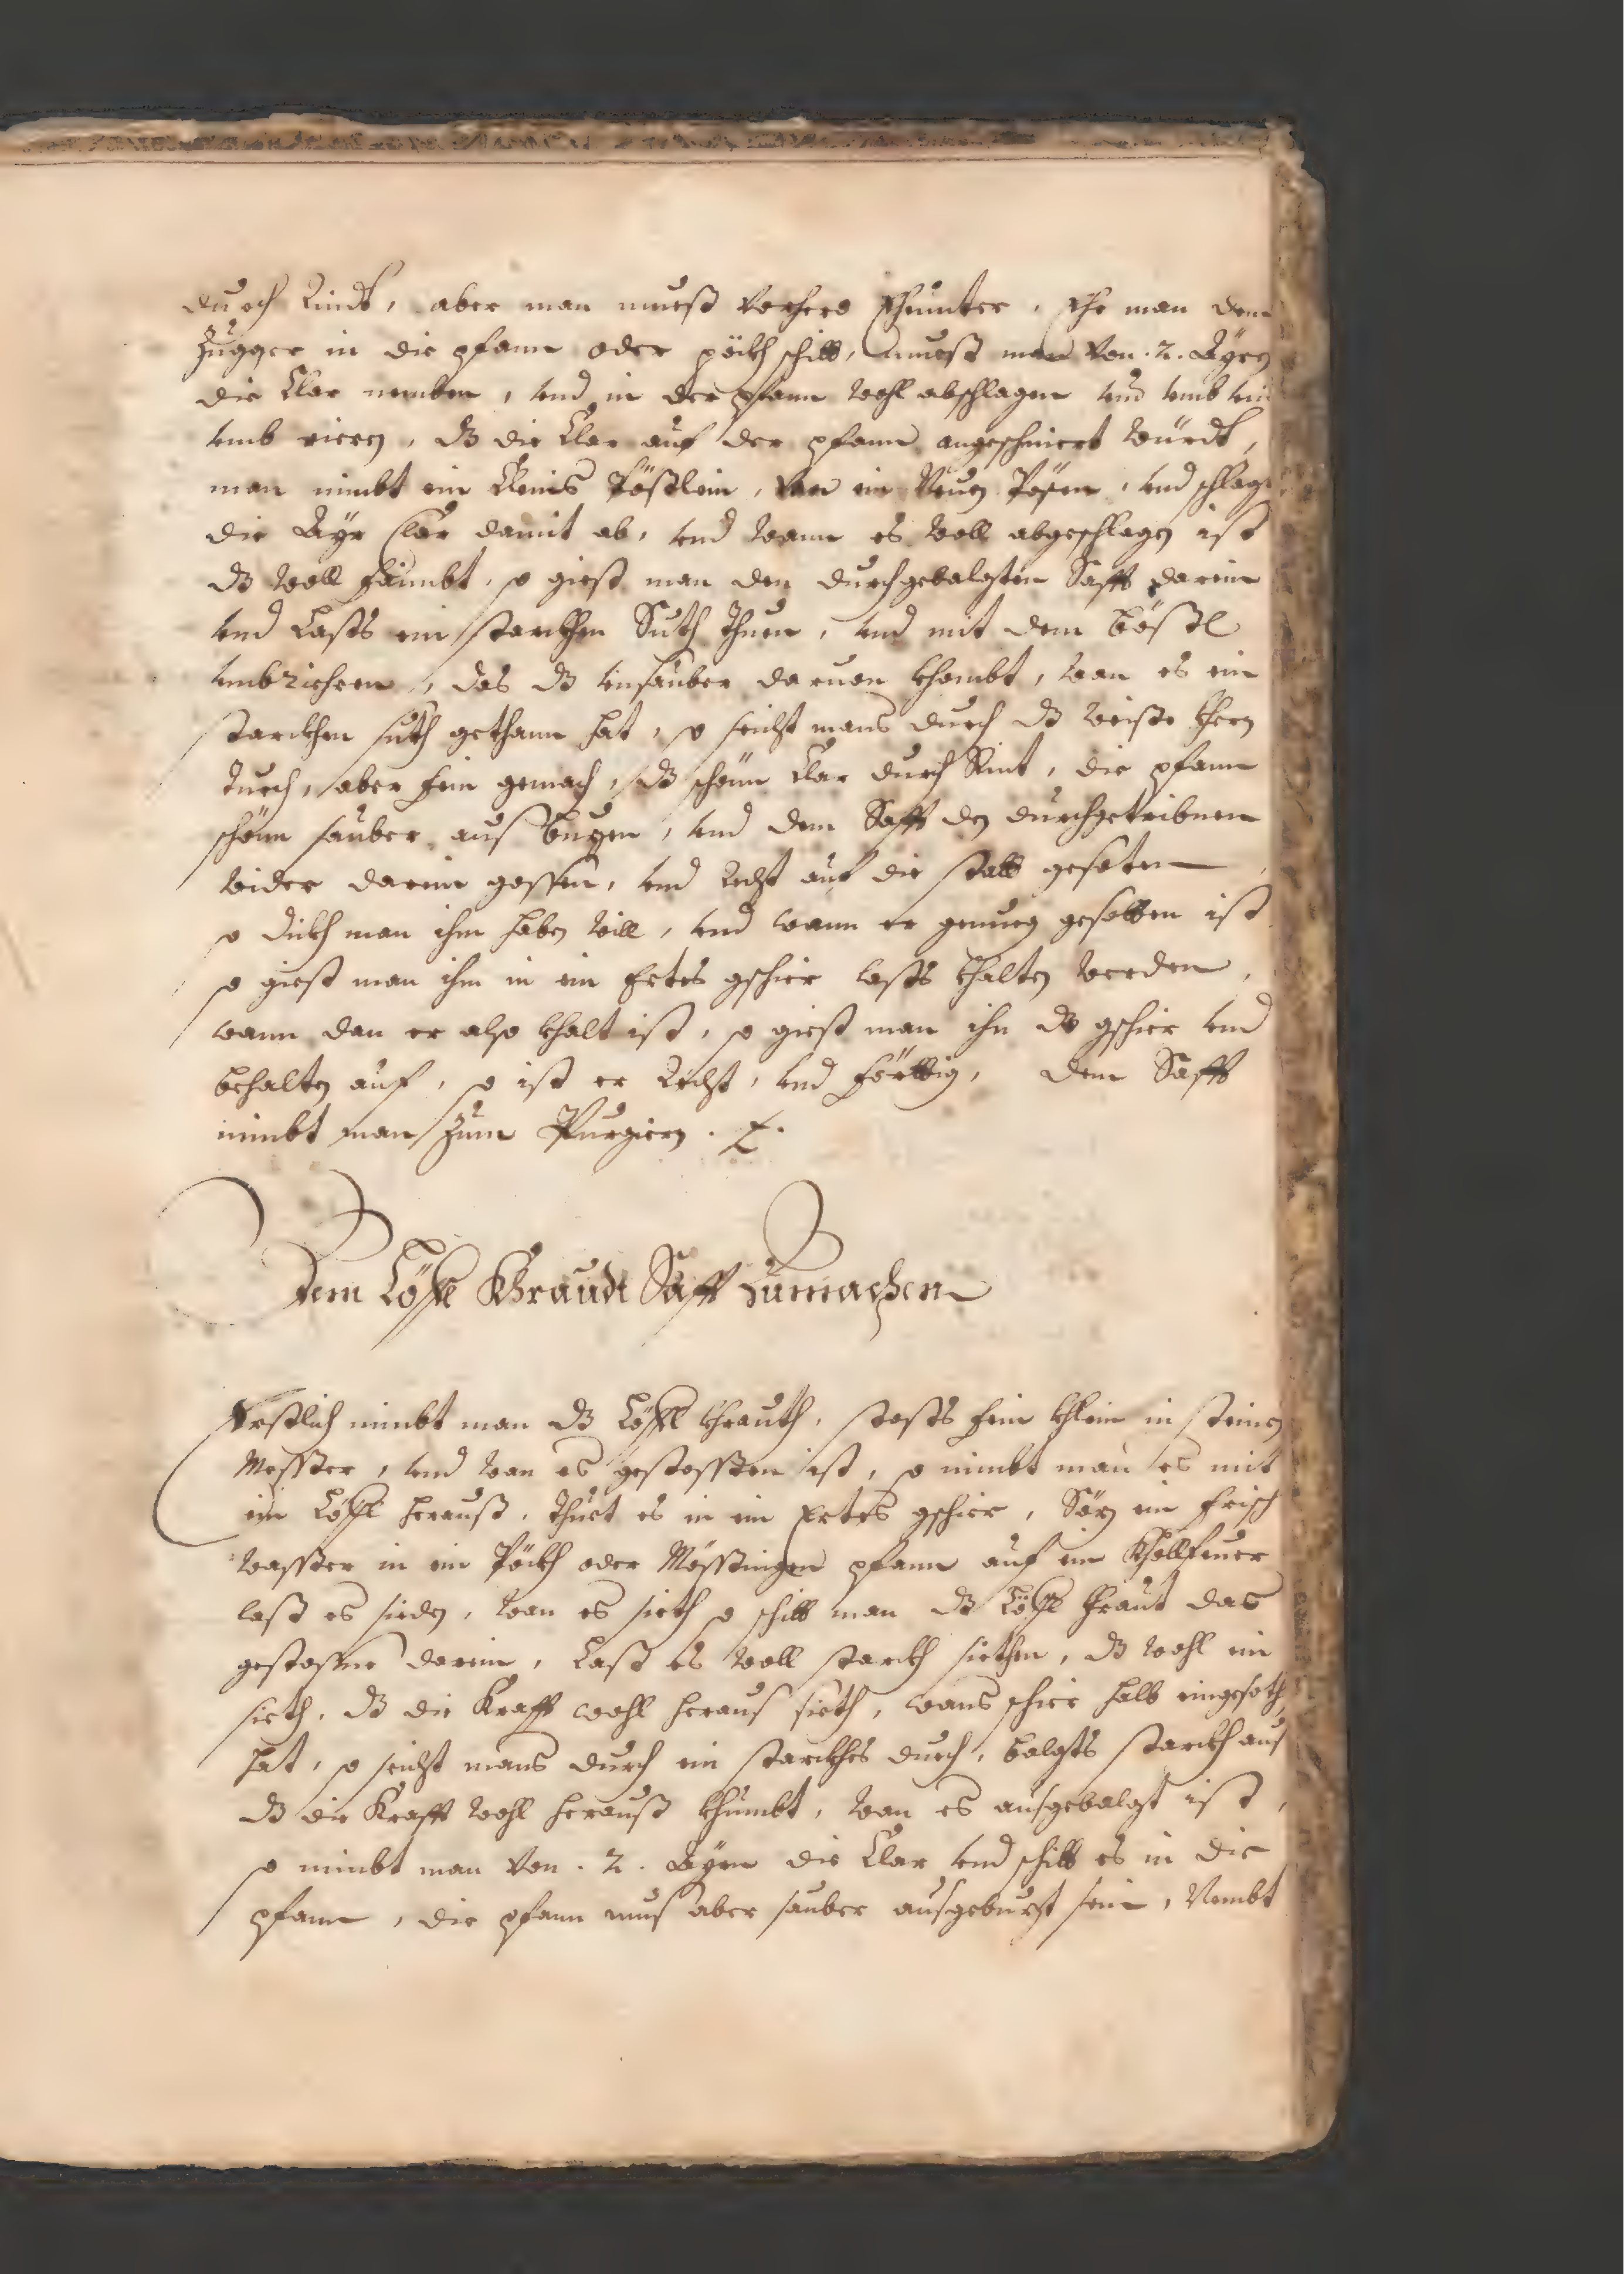 durch Rindt, aber man mueß vorhero Ehunter, Ehe man dem
Zugger in die pfann oder pöckh schitt, mueß man von .2. Ayrn
die Clar nemben, vnd in der pfann wohl abschlagen vnd vmb
vmb riern, dz die Clar auf der pfann angeschmiert würdt,
man nimbt ein Cleins Pößlein, von ein Neuen Pösen, vnd schlagt
die Ayr Clar damit ab, vnd wann es woll abgeschlagen ist
dz woll faimbt, so giest man den durchgebalgten Safft darein
vnd Lasts ein starckhen Suth thuen, vnd mit dem bößl
vmbriehren, das dz vnsauber daruon khombt, wan es ein
starckhen suth gethann hat, so seicht mans durch dz weiße
tuech, aber fein gemach, dz schönn Clar durch Rint, die pfann
schönn sauber aus buzen, vnd dem Safft den durchgetribnen
wider darein gossen, vnd Recht auf die statt gesoten
so dickh man ihm haben will, vnd wann er genueg gesotten ist
so giest man ihm in ein Ertes gschier lasts khalten werden,
wann dan er also khalt ist, so giest man ihn dz gschier vnd
behalten auf, so ist er Recht, vnd förttig, dem Safft
nimbt man zum Purgiern.
Dem Löffl Khraudt Safft Zumachen
Erstlich nimbt man dz Löffl khrauth, stosts fein khlein in steinen
Mosster, vnd wan es gestossten ist, so nimbt man es mit
ein Löffl herauß, thuet es in ein Ertes gschier, Sözn ein frisch
wasster in ein Pöckh oder Mösstingen pfann auf ein Khollfeuer
last es sieden, wan es sieth so schitt man dz Löffl khraut das
gestossne darein, Last es woll starckh siethen, dz wohl ein
sieth, dz die Krafft wohl heraus sieth, wans schier halb eingesoth
hat, so seicht mans durch ein starckhes duech, balgts starckh aus
dz die Krafft wohl herauß khumbt, wan es ausgebalgt ist,
so nimbt man von .2. Ayrn die Clar vnd schitt es in die
pfann, die pfann mus aber sauber ausgebuzt sein, Nembt